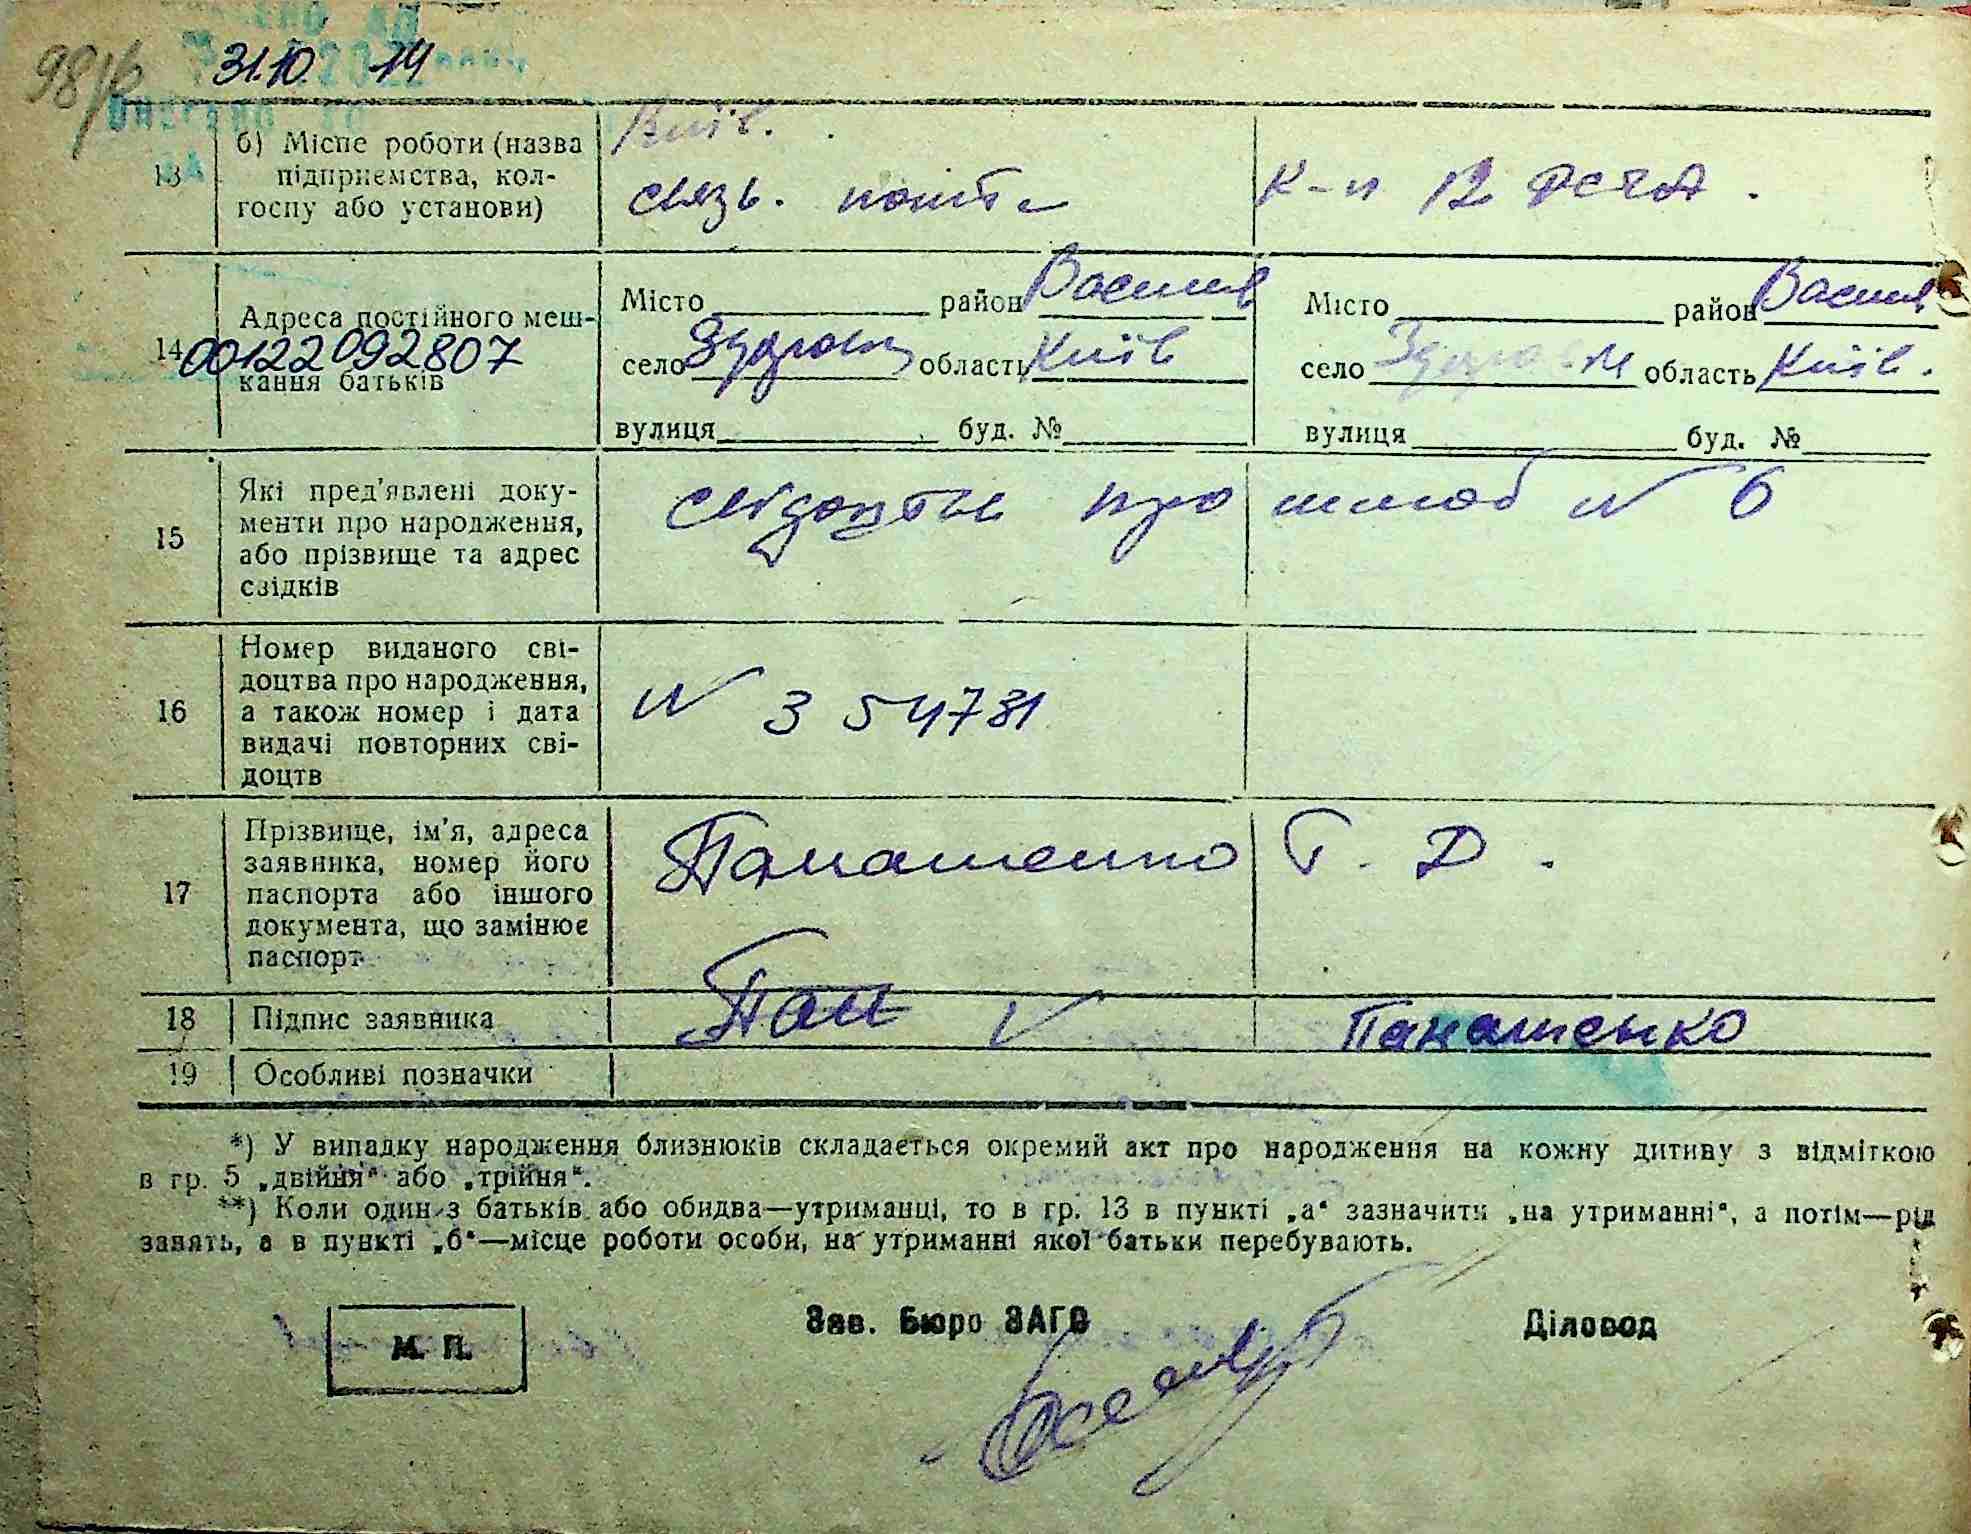 98/б 31.10. 14
13 б) Місце роботи (назва підприємства, колгоспу або установи)
Київ.
связь. пошта
К-п 12 РСЧА.
14 Адреса постійного мешкання батьків
00122092807
Місто район Васильк
село Здоровк область Київ
вулиця буд. №
Місто район Васильк
село Здоровк область Київ.
вулиця буд. №
15 Які пред'явлені документи про народження, або прізвище та адрес свідків
свідоцтво про шлюб № 6
16 Номер виданого свідоцтва про народження, а також номер і дата видачі повторних свідоцтв
№ 354731
17 Прізвище, ім'я, адреса заявника, номер його паспорта або іншого документа, що замінює паспорт
Панашенко Г. Д.
18 Підпис заявника
Пан V Панашенко
19 Особливі позначки
*) У випадку народження близнюків складається окремий акт про народження на кожну дитину з відміткою
в гр. 5 „двійня“ або „трійня“.
**) Коли один з батьків або обидва—утриманці, то в гр. 13 в пункті „а“ зазначити „на утриманні“, а потім—рід
занять, а в пункті „б“—місце роботи особи, на утриманні якої батьки перебувають.
М. П.
Зав. Бюро ЗАГС
Діловод